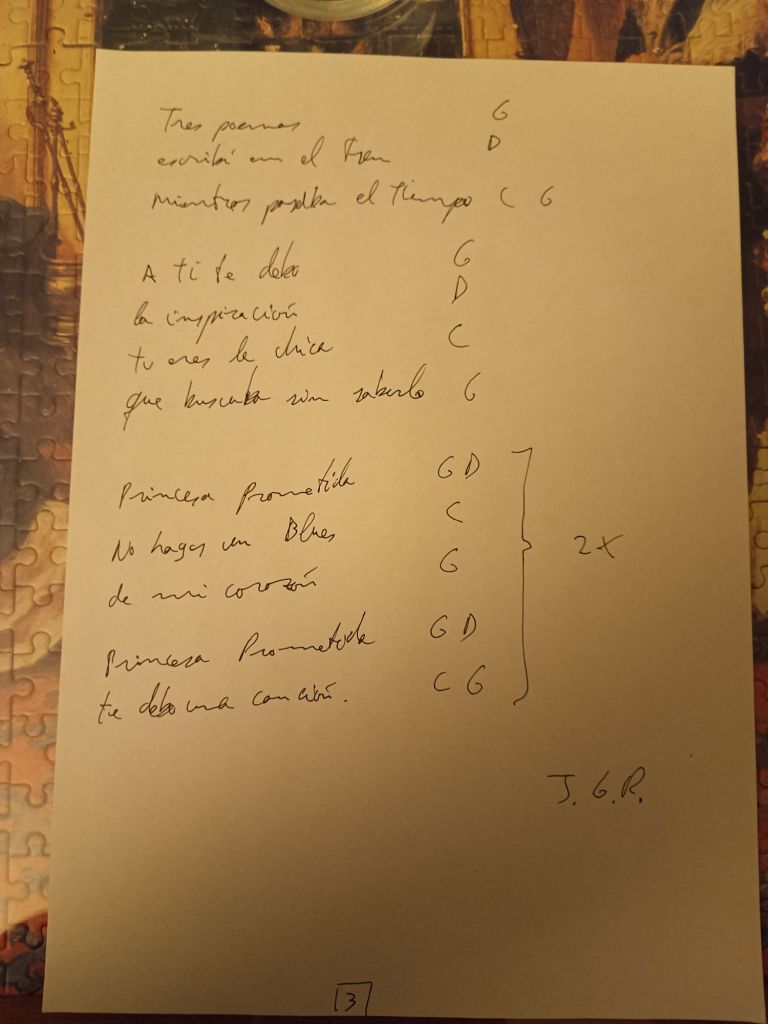 Tres poemas G
escribí en el tren D
mientras pasaba el tiempo C G
A ti te debo G
la inspiración D
tu eres la chica C
que buscaba sin saberlo G
Princesa Prometida G D
No hagas un Blues C
de mi corazón G
2X
Princesa Prometida G D
te debo una canción. C G
J. G. R.
3